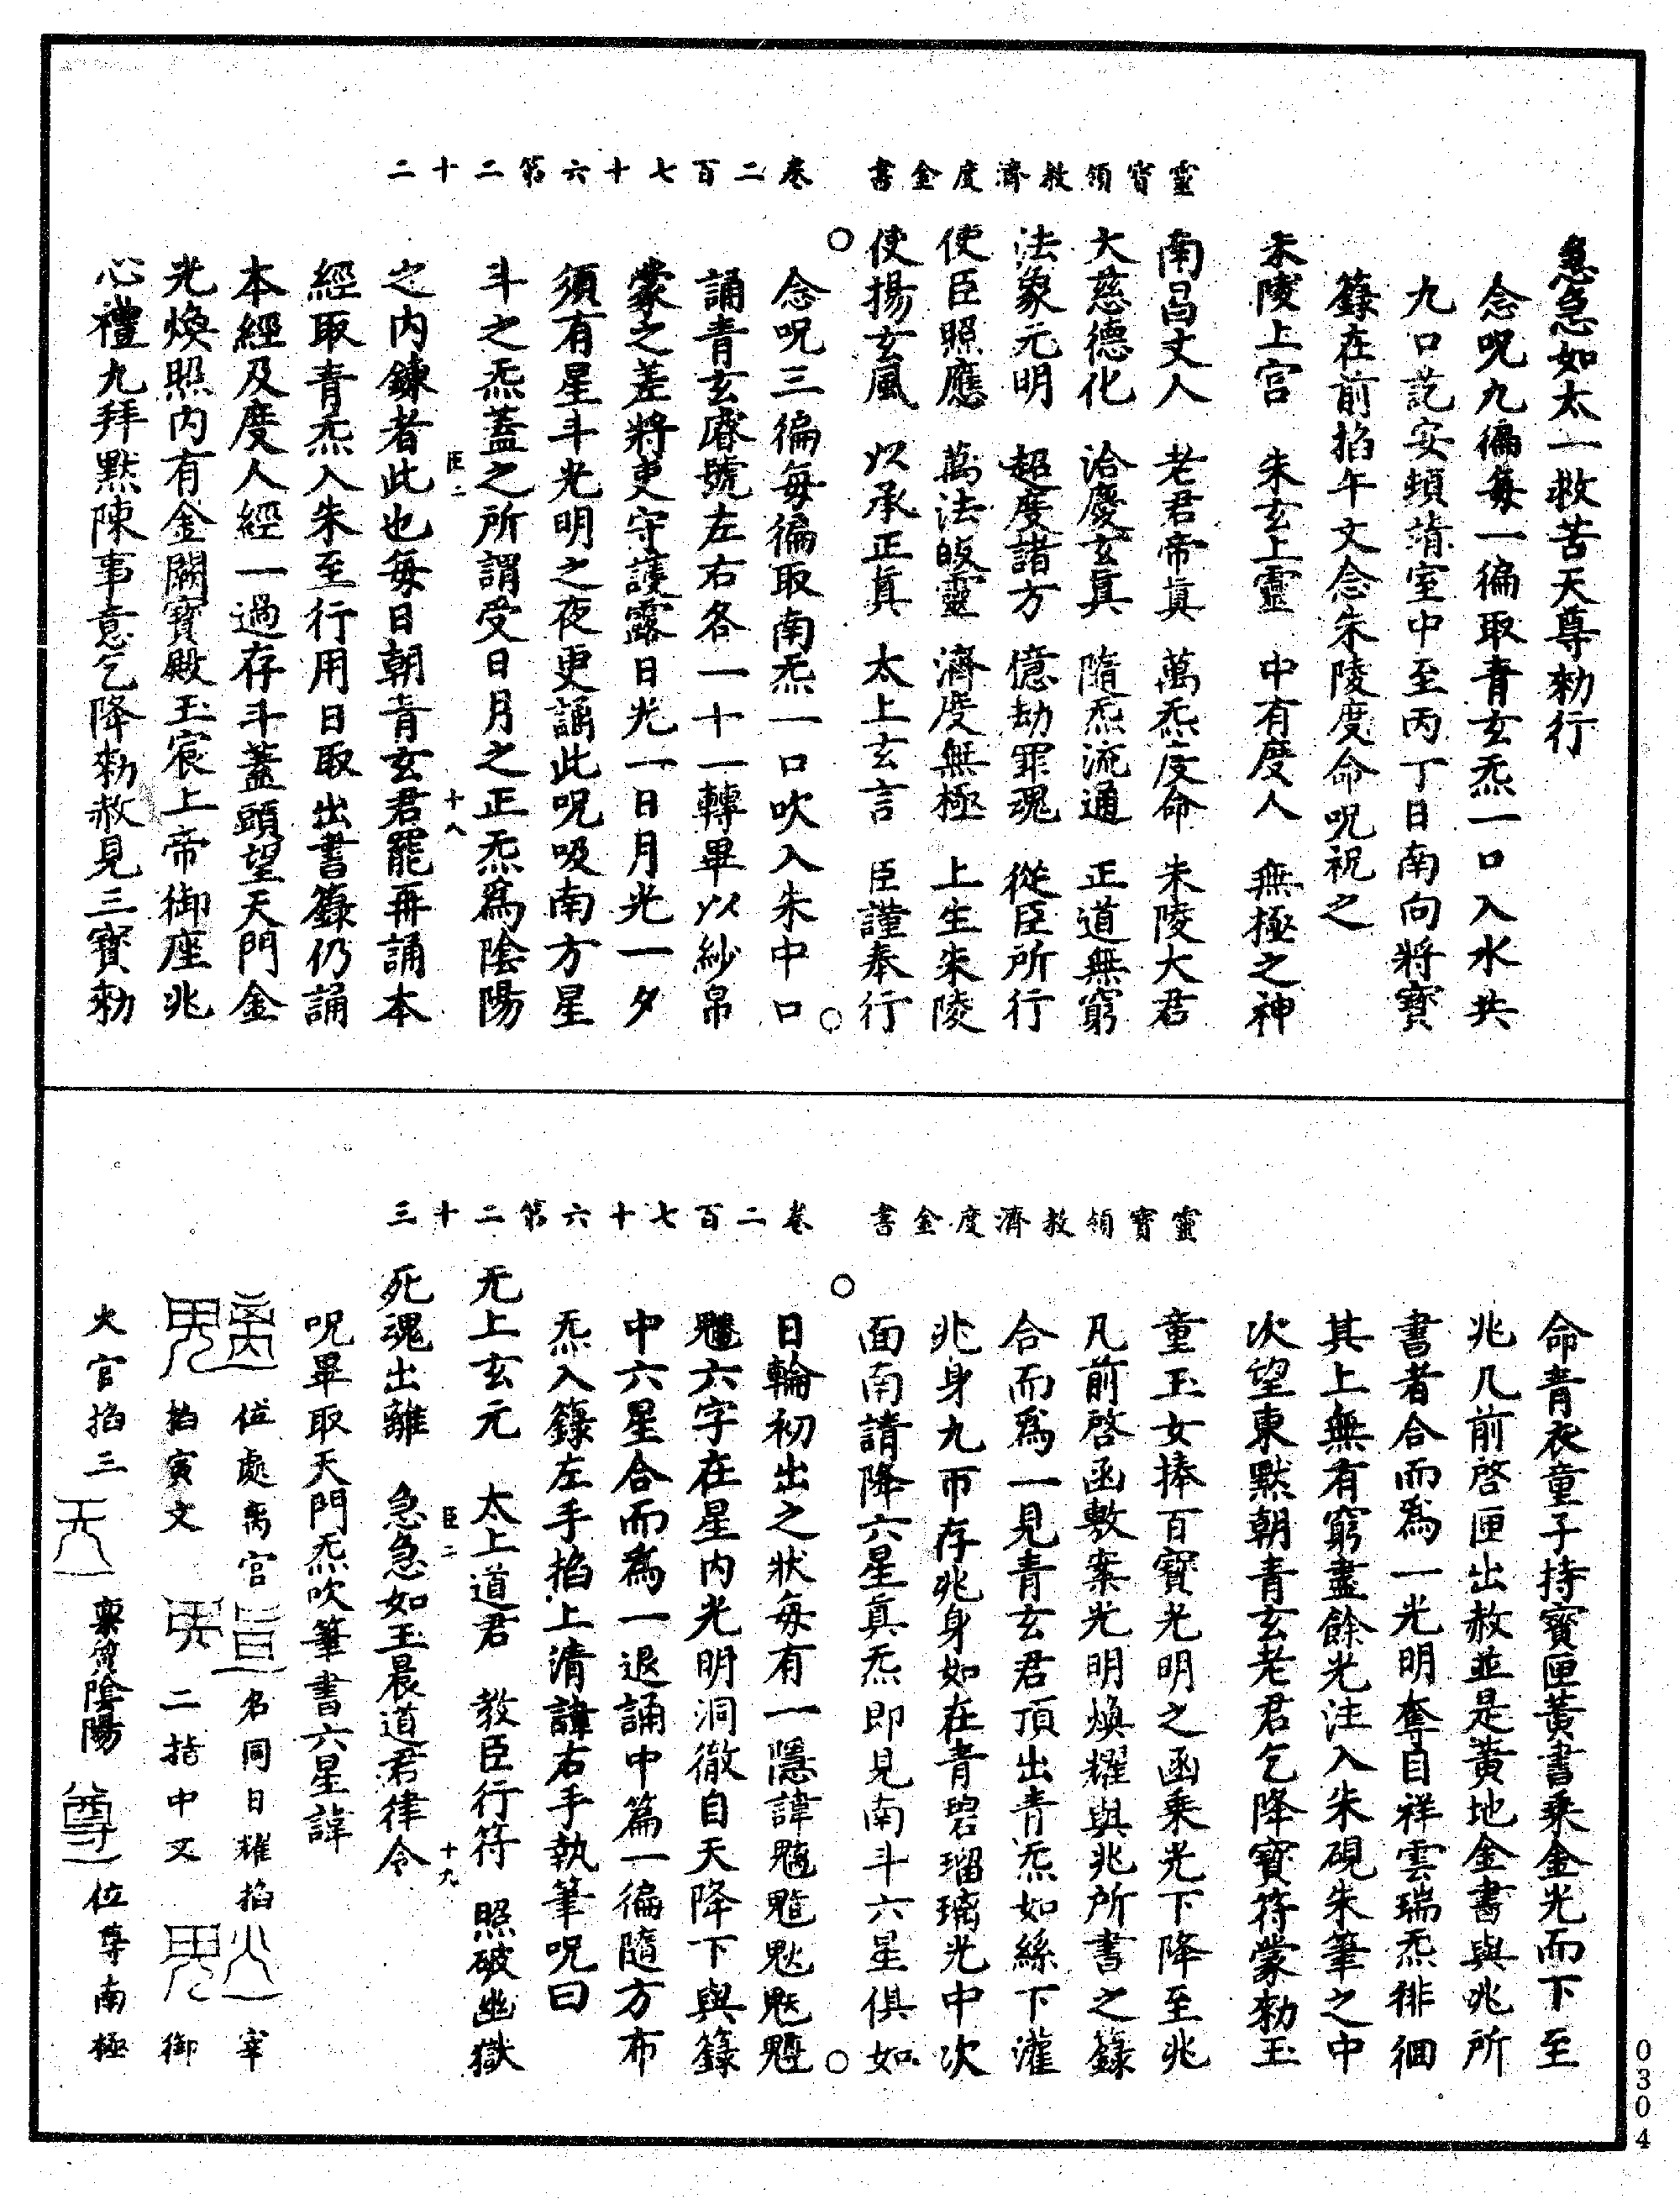 靈寶領教濟度金書　卷二百七十六第二十二
急急如太一救苦天尊勑行
念呪九徧每一徧取青玄炁一口入水共
九口訖安頓清室中至丙丁日南向將寶
籙在前掐午文念朱陵度命呪祝之
朱陵上宫　朱玄上靈　中有度人　無極之神
南昌丈人　老君帝真　萬炁度命　朱陵大君
大慈德化　洽慶玄真　隨炁流通　正道無窮
法象元明　超度諸方　億劫罪魂　從臣所行
使臣照應　萬法皈靈　濟度無極　上生朱陵
使揚玄風　以承正真　太上玄言　臣謹奉行
念呪三徧每徧取南炁一口吹入朱中口
誦青玄隱號左右各一十一轉畢以紗帛
蒙之差將吏守護露日光一日月光一夕
須有星斗光明之夜更誦此呪吸南方星
斗之炁蓋之所謂受日月之正炁爲陰陽
臣二　十八
之内鍊者此也每日朝青玄君罷再誦本
經取青炁入朱至行用日取出書籙仍誦
本經及度人經一過存斗蓋頭望天門金
光煥照内有金闕寶殿玉宸上帝御座兆
心禮九拜默陳事意乞降勑赦見三寶勑
靈寶領教濟度金書　卷二百七十六第二十三
命青衣童子持寶匣黃書乘金光而下至
兆几前啓匣出赦並是黃地金書與兆所
書者合而爲一光明奪目祥雲瑞炁徘徊
其上無有窮盡餘光注入朱硯朱筆之中
次望東默朝青玄老君乞降寶符蒙勑玉
童玉女捧百寶光明之函乘光下降至兆
几前啓函敷案光明煥耀與兆所書之籙
合而爲一見青玄君頂出青炁如絲下灌
兆身九帀存兆身如在青碧瑠璃光中次
面南請降六星真炁即見南斗六星俱如
日輪初出之狀每有一隱諱
六字在星内光明洞徹自天降下與籙
中六星合而爲一退誦中篇一徧隨方布
炁入籙左手掐上清諱右手執筆呪曰
无上玄元　太上道君　教臣行符　照破幽獄
臣二　十九
死魂出離　急急如玉晨道君律令
呪畢取天門炁吹筆書六星諱
位處离宫　名同日耀掐　宰
掐寅文　二指中文　御
火官掐三　稟質陰陽　位尊南極
0304